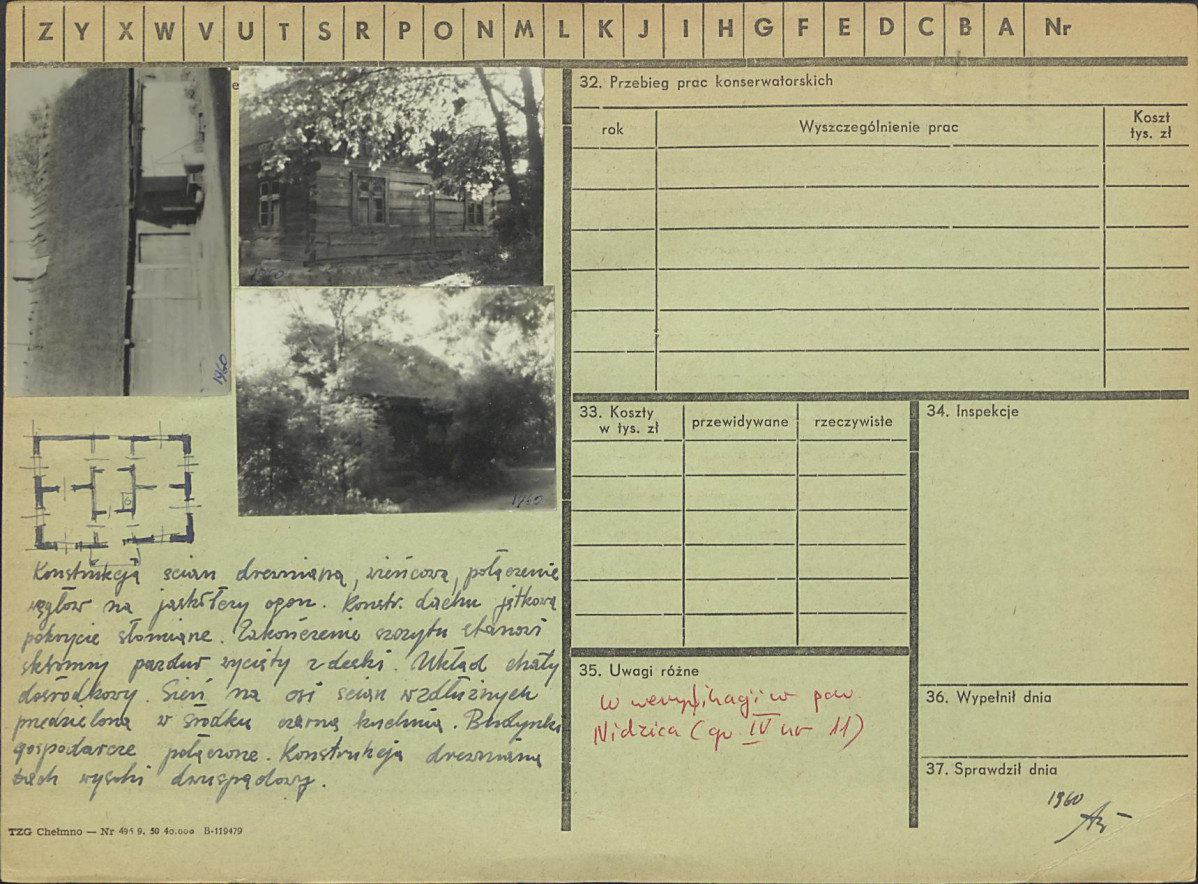 Z Y X W V U T S R P O N M L K J I H G F E D C B A Nr
1960
1960
Konstrukcja ścian drewniana, wieńcowa, połączenie
węgłów na jaskółczy ogon. Konstr. dachu jętkowa
pokrycie słomiane. Zakończenie szczytu stanowi
skromny pazdur wycięty z deski. Układ chaty
dośrodkowy. Sień na osi ścian wzdłużnych
przedzielona w środku czarną kuchnią. Budynki
gospodarcze połączone. Konstrukcja drewniana
dach wysoki dwuspadowy.
TZG Chełmno — Nr 9. 50 40.000 B-119479
32. Przebieg prac konserwatorskich
rok
Wyszczególnienie prac
Koszt
tys. zł
33. Koszty
w tys. zł
przewidywane
rzeczywiste
34. Inspekcje
35. Uwagi różne
W weryfikacji w pow.
Nidzica (gr IV nr 11)
36. Wypełnił dnia
37. Sprawdził dnia
1960